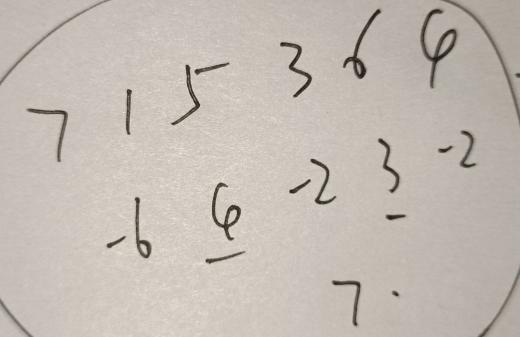 7 1 5 3 6 4
-6 4 -2 3 -2
7.